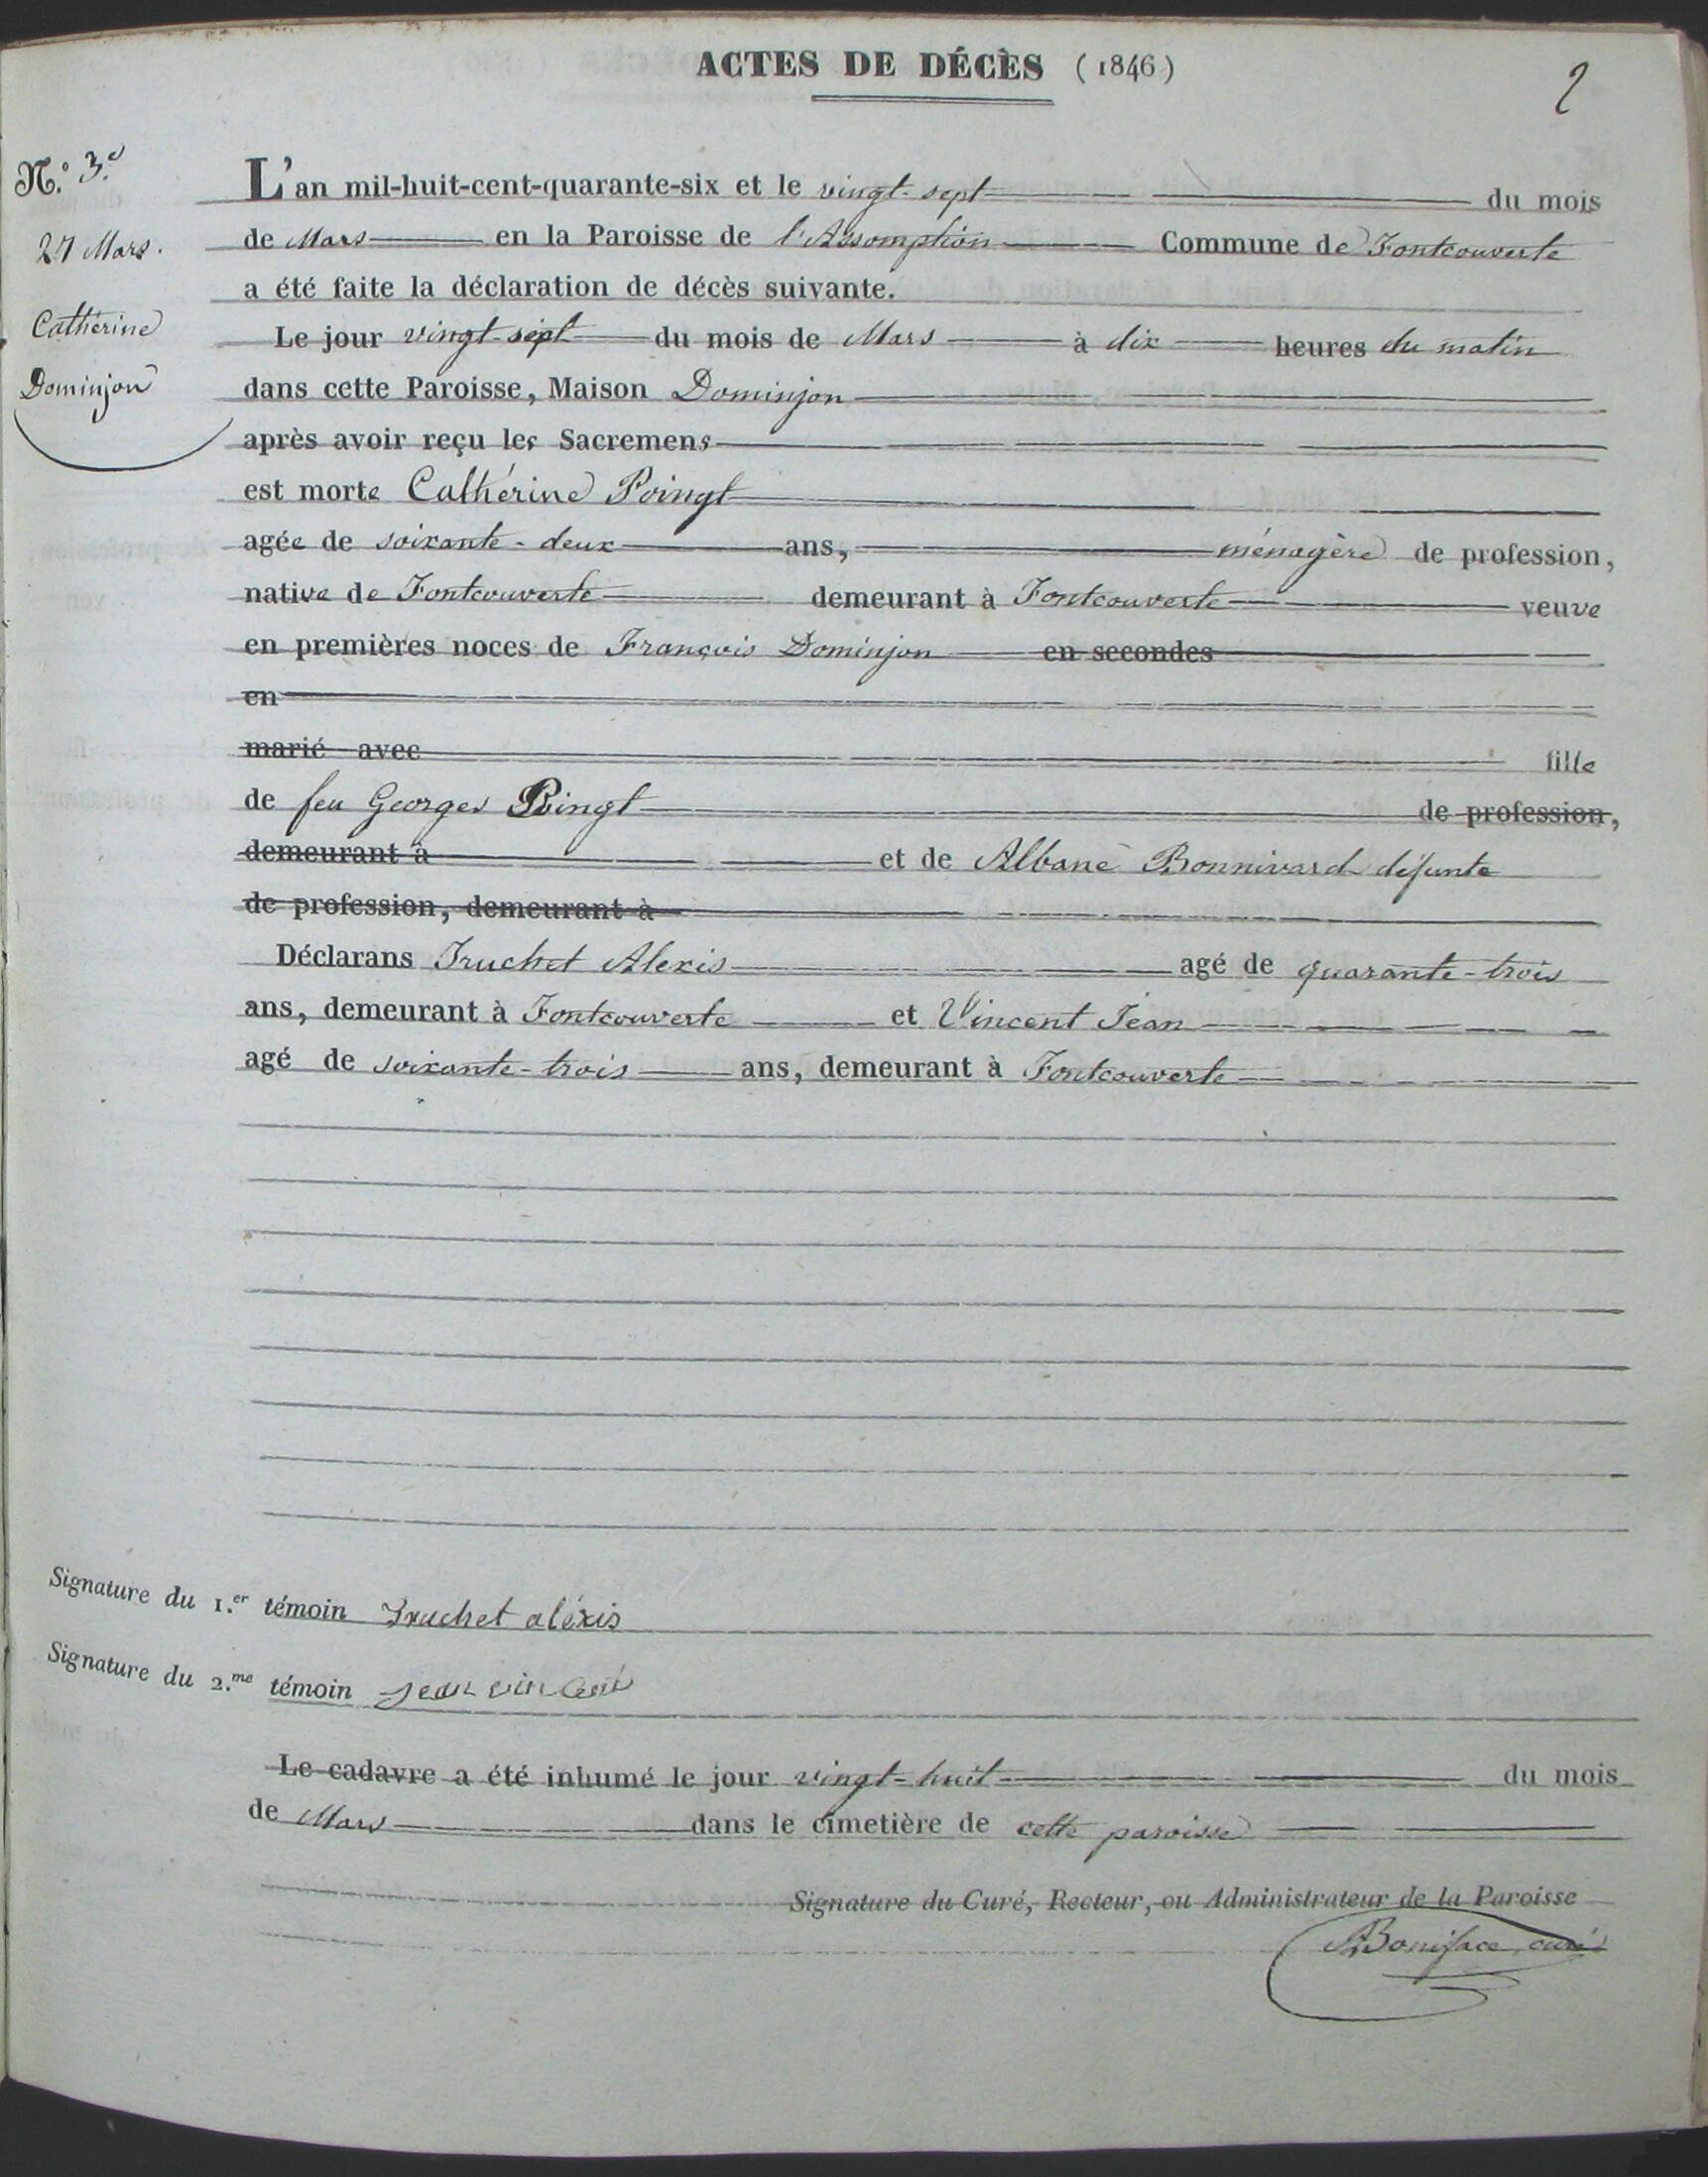 ACTES DE DÉCÈS (1846)
2
N.º 3.e
27 Mars.
Cathérine
Dominjon
L'an mil-huit-cent-quarante-six et le vingt-sept du mois
de Mars en la Paroisse de l'Assomption Commune de Fontcouverte
a été faite la déclaration de décès suivante.
Le jour vingt-sept du mois de Mars à dix heures du matin
dans cette Paroisse, Maison Dominjon
après avoir reçu les Sacremens
est morte Cathérine Poingt
agée de soixante-deux ans, ménagère de profession,
native de Fontcouverte demeurant à Fontcouverte veuve
en premières noces de François Dominjon en secondes
en
marié avec fille
de feu Georges Poingt de profession,
demeurant à et de Albane Bonnivard défunte
de profession, demeurant à
Déclarans Truchet Alexis agé de quarante-trois
ans, demeurant à Fontcouverte et Vincent Jean
agé de soixante-trois ans, demeurant à Fontcouverte
Signature du 1.er témoin Truchet aléxis
Signature du 2.me témoin Jean vincent
Le cadavre a été inhumé le jour vingt-huit du mois
de Mars dans le cimetière de cette paroisse
Signature du Curé, Recteur, ou Administrateur de la Paroisse
Boniface, curé